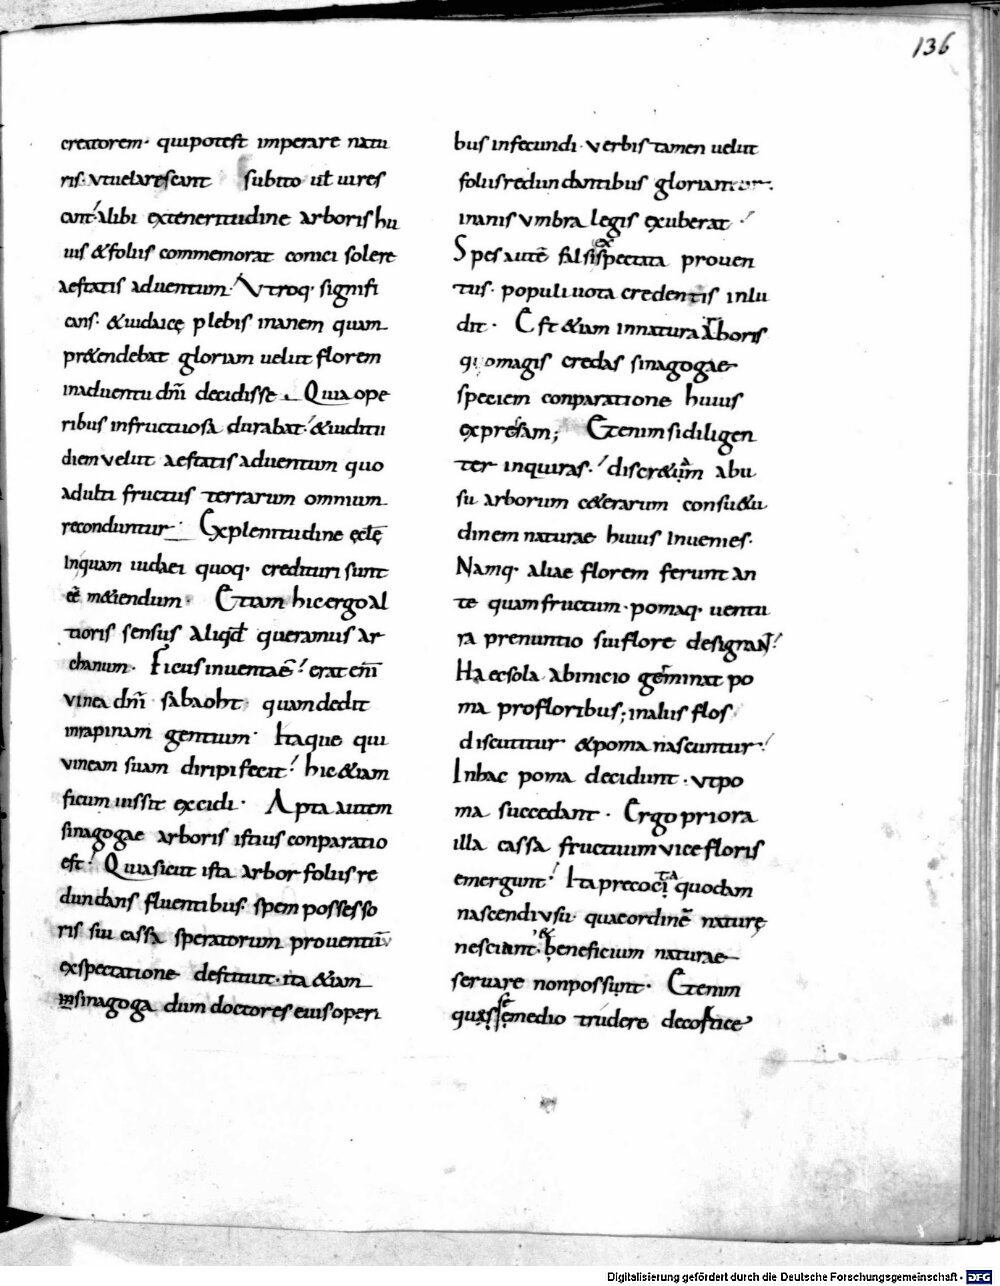 136
creatorem· qui potest imperare natu
ris· vt uel arescant subito ut uires
cant· alibi ex teneritudine arboris hu
ius & foliis commemorat conici solere
aestatis aduentum· Vtroq· signifi
cans· & iudaicę plebis inanem quam
pr&endebat gloriam uelut florem
in aduentu dñi decidisse· Quia ope
ribus infructuosa durabat· & iuditii
diem velut aestatis aduentum quo
adulti fructus terrarum omnium
reconduntur· Ex plenitudine ęctę
inquam iudaei quoq· credituri sunt
eē m&iendum· Etiam hic ergo al
tioris sensus aliqd queramus ar
chanum· Ficus inuentaē erat eni
vinea dñi sabaoht quam dedit
in rapinam gentium· Itaque qui
vineam suam diripi fecit· hic &iam
ficum iussit excidi· Apta autem
sinagogae arboris istius conparatio
est· Quia sicut ista arbor foliis re
dundans fluentibus spem possesso
ris sui cassa speratorum prouentuū
exspectatione destituit· ita &iam
in sinagoga dum doctores eius operi
bus infecundi· verbis tamen uelut
foliis redundantibus gloriantur·
inanis vmbra legis exuberat·
Spes autē falsi exspectata prouen
tus· populi uota credentis inlu
dit· Est &iam in natura arboris
quo magis credas sinagogae
speciem conparatione huius
expresam; Etenim si diligen
ter inquiras· discr&ium abu
su arborum c&erarum consu&u
dinem naturae huius inuenies·
Namq· aliae florem ferunt an
te quam fructum· pomaq· uentu
ra prenuntio sui flore designaNT·
Haec sola ab inicio germinat po
ma pro floribus; in aliis flos
discutitur & poma nascuntur·
In hac poma decidunt· vt po
ma succedant· Ergo priora
illa cassa fructuum vice floris
emergunt· Ita precoci ta quodam
nascendi vsu· quae ordinē naturę
nesciunt· & beneficium naturae
seruare non possunt· Etenim
quasi se medio trudere de cortice
Digitalisierung gefördert durch die Deutsche Forschungsgemeinschaft - DFG